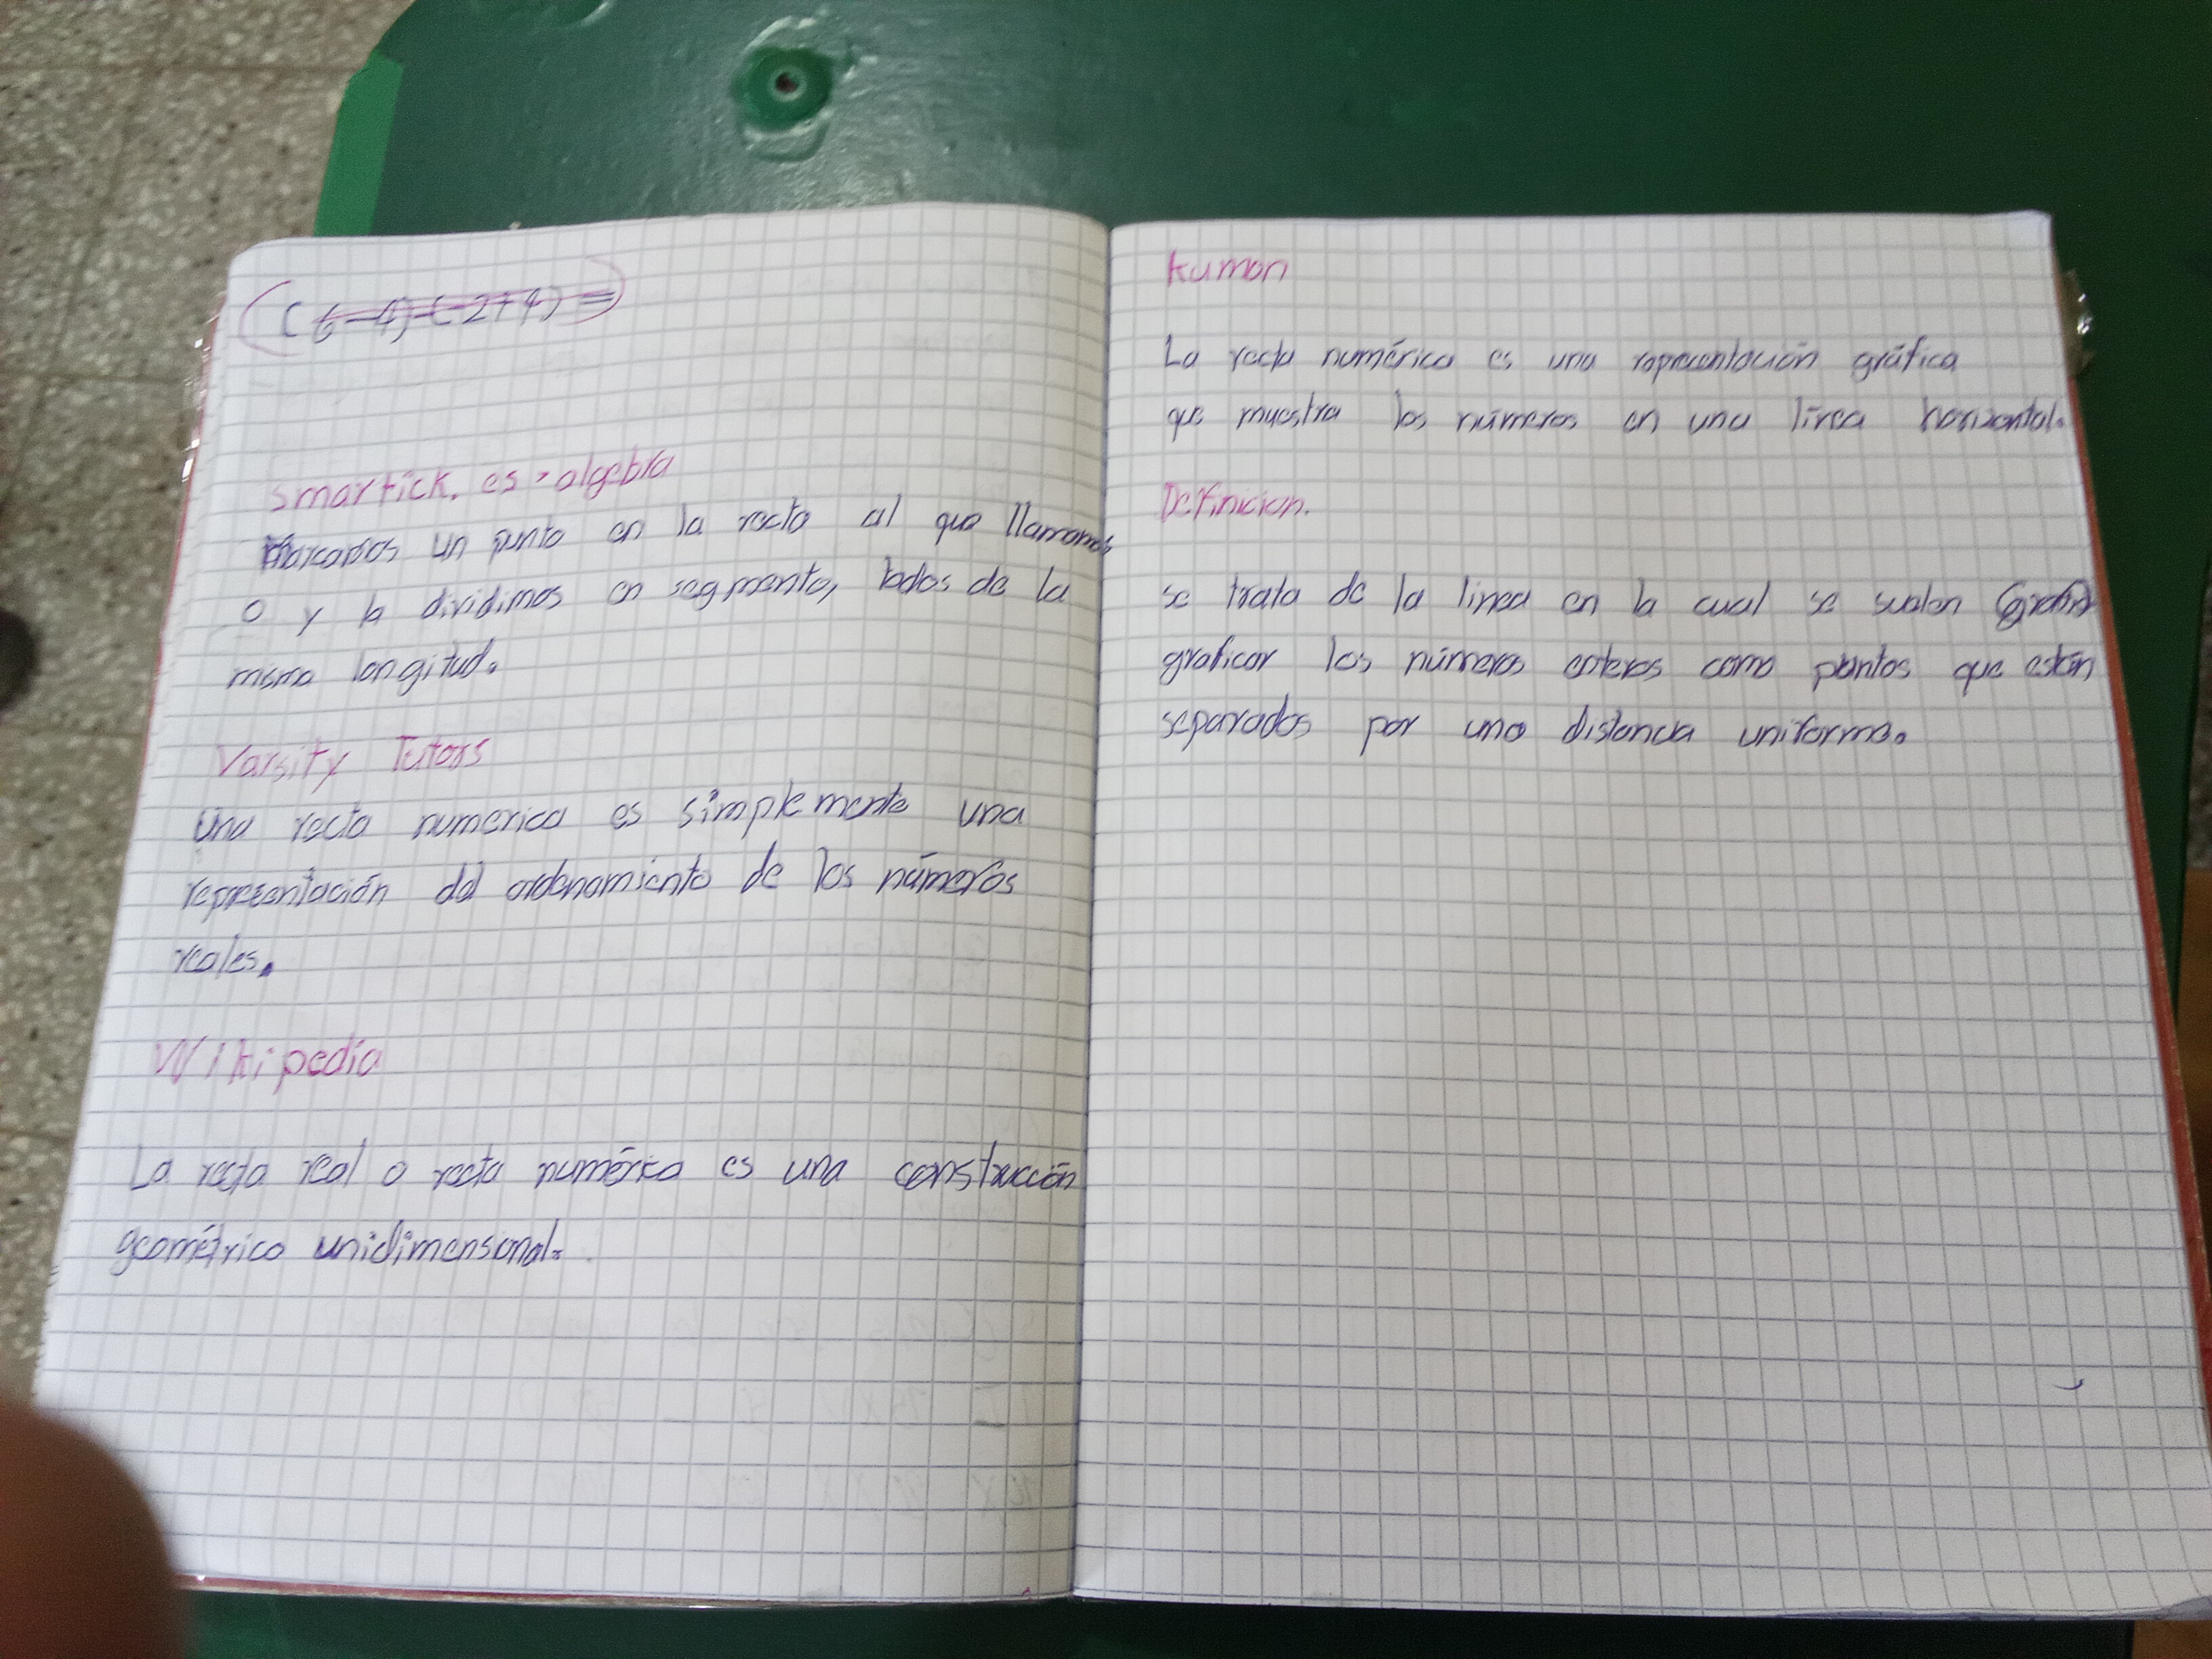 ( 6-4)-(-2+4) =
smartick. es › algebra
Marcamos un punto en la recta al que llamamos
0 y la dividimos en segmento, todos de la
misma longitud.
Varsity Tutors
Una recta numerica es simplemente una
representación del ordenamiento de los números
reales.
Wikipedia
La recta real o recta numérica es una construcción
geométrico unidimensional.
kumon
La recta numérica es una representación gráfica
que muestra los números en una línea horizontal.
Definicion.
se trata de la linea en la cual se suelen
graficar los números enteros como puntos que están
separados por una distancia uniforme.